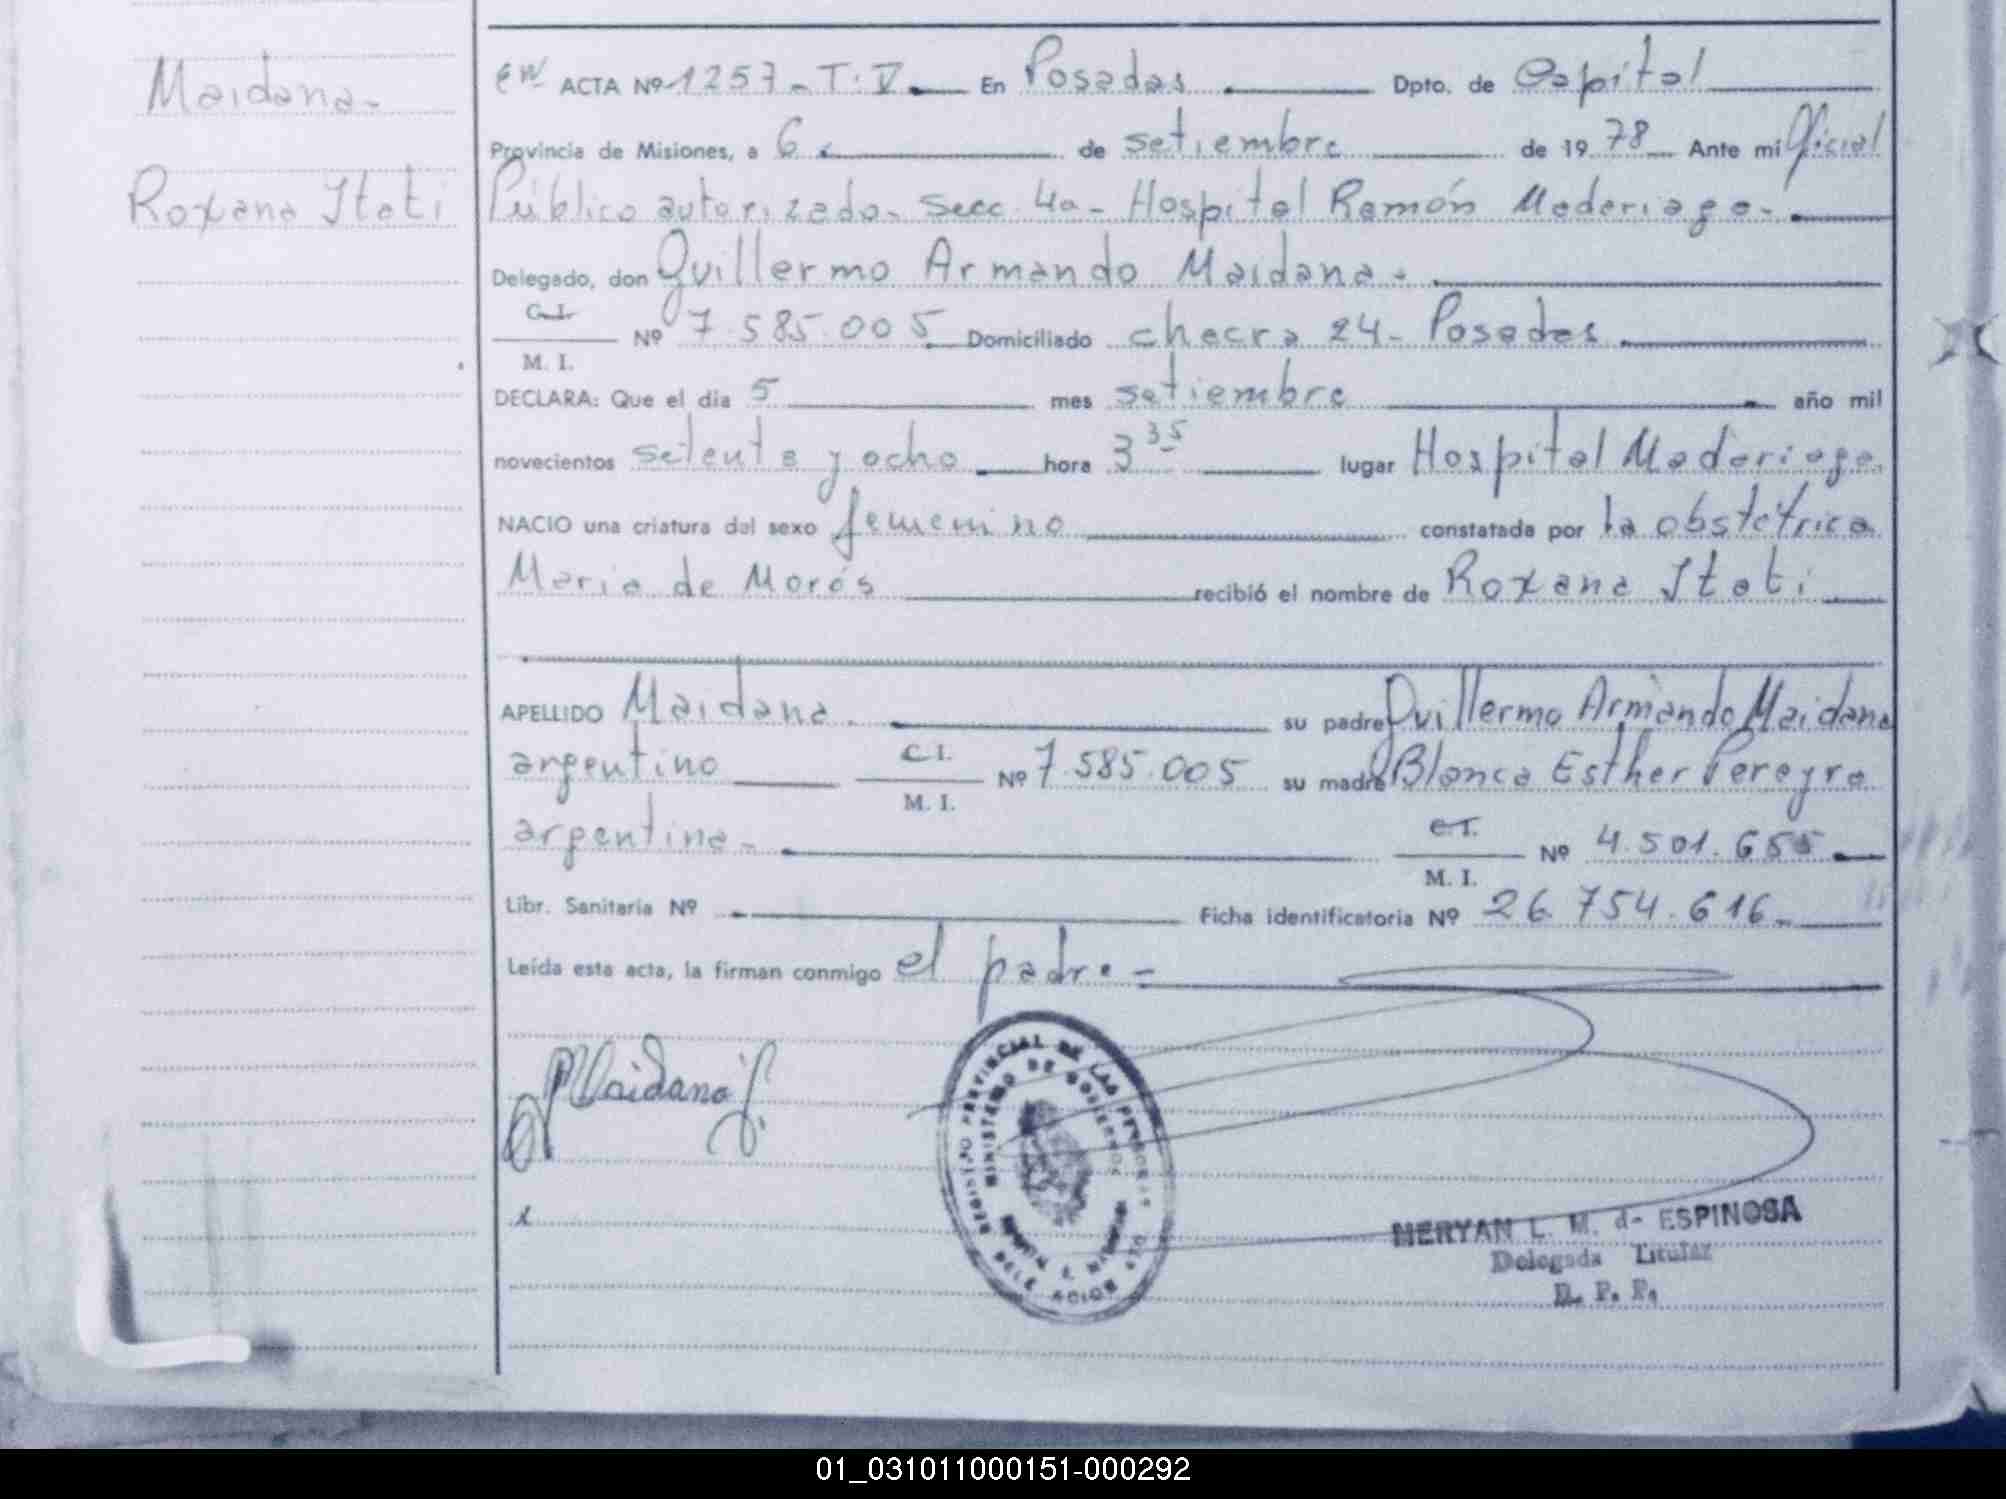 Maidana-
Roxana Itatí
ACTA Nº 1257 - T: V. En Posadas Dpto. de Capital
Provincia de Misiones, a 6 de setiembre de 19 78 Ante mi Oficial
Público autorizado - Secc. 4a - Hospital Ramón Madariaga -
Delegado, don Guillermo Armando Maidana.
C. I.
M. I.
Nº 7.585.005 Domiciliado chacra 24 - Posadas
DECLARA: Que el dia 5 mes setiembre año mil
novecientos setenta y ocho hora 3 35 lugar Hospital Madariaga
NACIO una criatura del sexo femenino constatada por la obstétrica
Maria de Morós recibió el nombre de Roxana Itatí
APELLIDO Maidana su padre Guillermo Armando Maidana
argentino C I.
M. I.
Nº 7.585.005 su madre Blanca Esther Pereyra
argentina - C I.
M. I.
Nº 4.501.655
Libr. Sanitaria Nº Ficha identificatoria Nº 26.754.616 -
Leída esta acta, la firman conmigo el padre -
Maidana
REGISTRO PROVINCIAL DE LAS PERSONAS
MINISTERIO DE GOBIERNO
MERYAN L. M. de ESPINOSA
Delegada Titular
R. P. P.
01_031011000151-000292